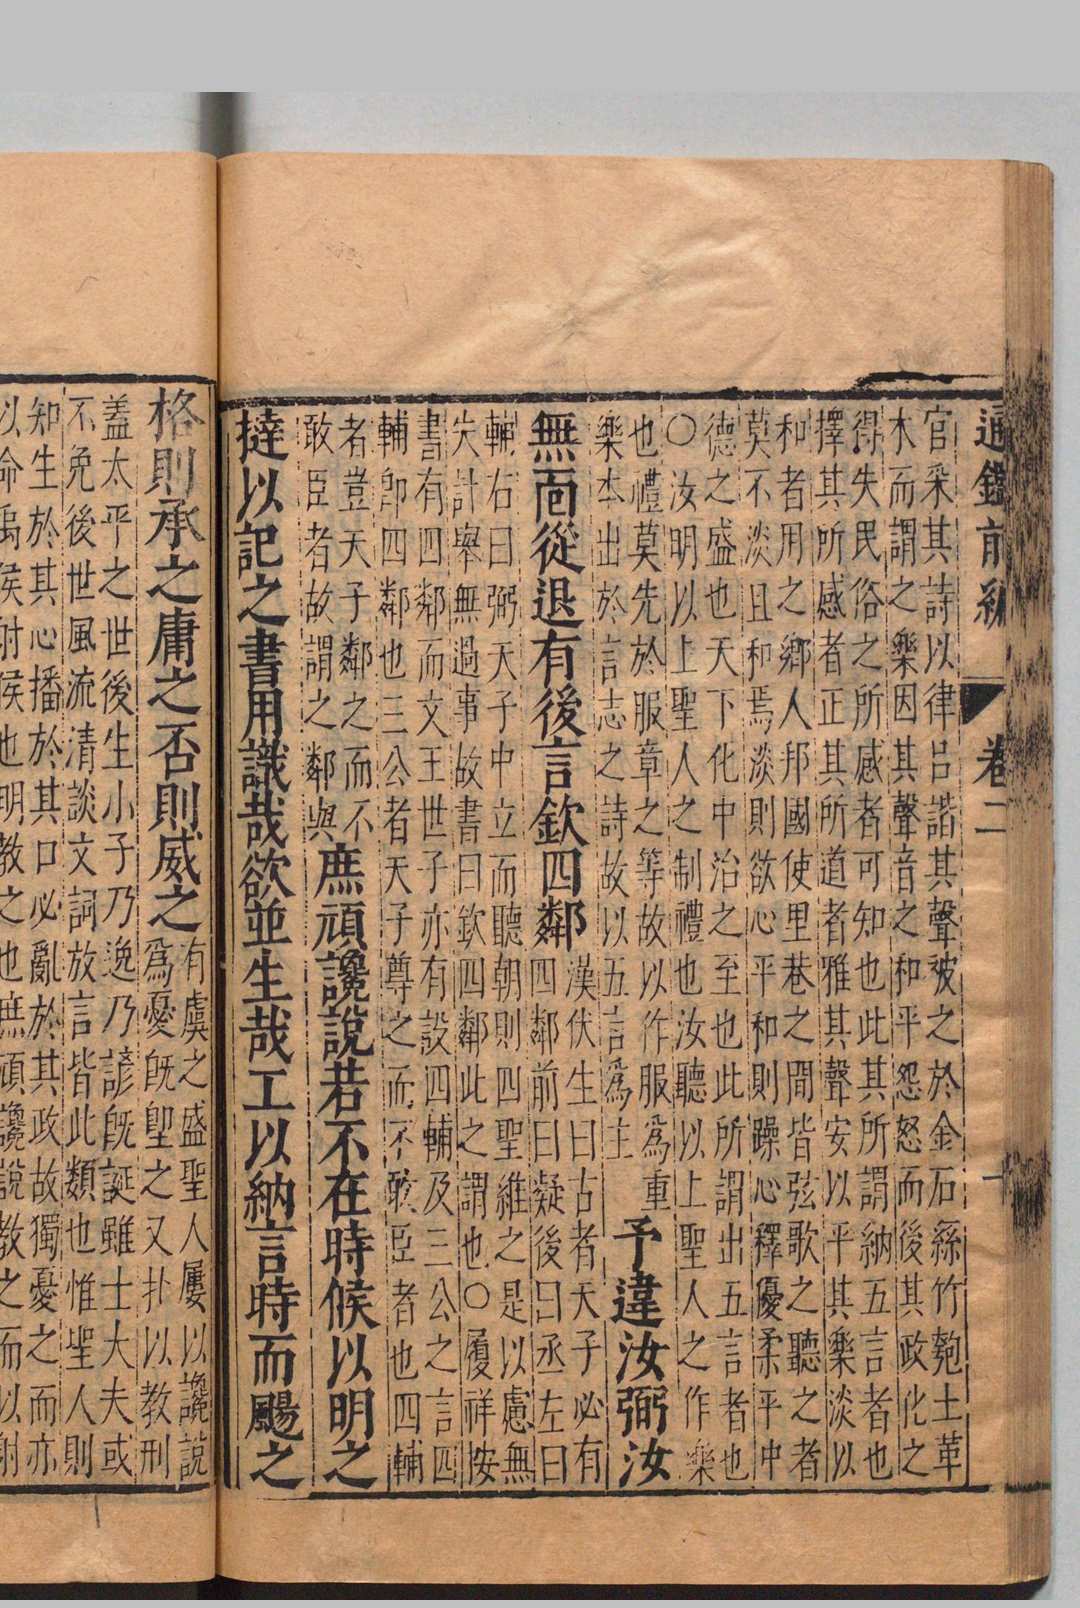 通鑑前編 卷二 一
官采其詩以律呂諧其聲被之於金石絲竹匏土革
木而謂之樂因其聲音之和平怨怒而後其政化之
得失民俗之所感者可知也此其所謂納五言者也
擇其所感者正其所道者雅其聲安以平其樂淡以
和者用之鄉人邦國使里巷之間皆弦歌之聽之者
莫不淡且和焉淡則欲心平和則躁心釋優柔平中
德之盛也天下化中治之至也此所謂出五言者也
○汝明以上聖人之制禮也汝聽以上聖人之作樂
也禮莫先於服章之等故以作服為重
樂本出於言志之詩故以五言為主
予違汝弼汝
無面從退有後言欽四鄰
漢伏生曰古者天子必有
四鄰前曰疑後曰丞左曰
輔右曰弼天子中立而聽朝則四聖維之是以慮無
失計舉無過事故書曰欽四鄰此之謂也○履祥按
書有四鄰而文王世子亦有設四輔及三公之言四
輔即四鄰也三公者天子尊之而不敢臣者也四輔
者豈天子鄰之而不
敢臣者故謂之鄰與
庶頑讒說若不在時候以明之
撻以記之書用識哉欲並生哉工以納言時而颺之
格則承之庸之否則威之
有虞之盛聖人屢以讒說
為憂既堲之又扑以教刑
蓋太平之世後生小子乃逸乃諺既誕雖士大夫或
不免後世風流清談文詞放言皆此類也惟聖人則
知生於其心播於其口必亂於其政故獨憂之而亦
以命禹侯射侯也明教之也庶頑讒說教之而以射